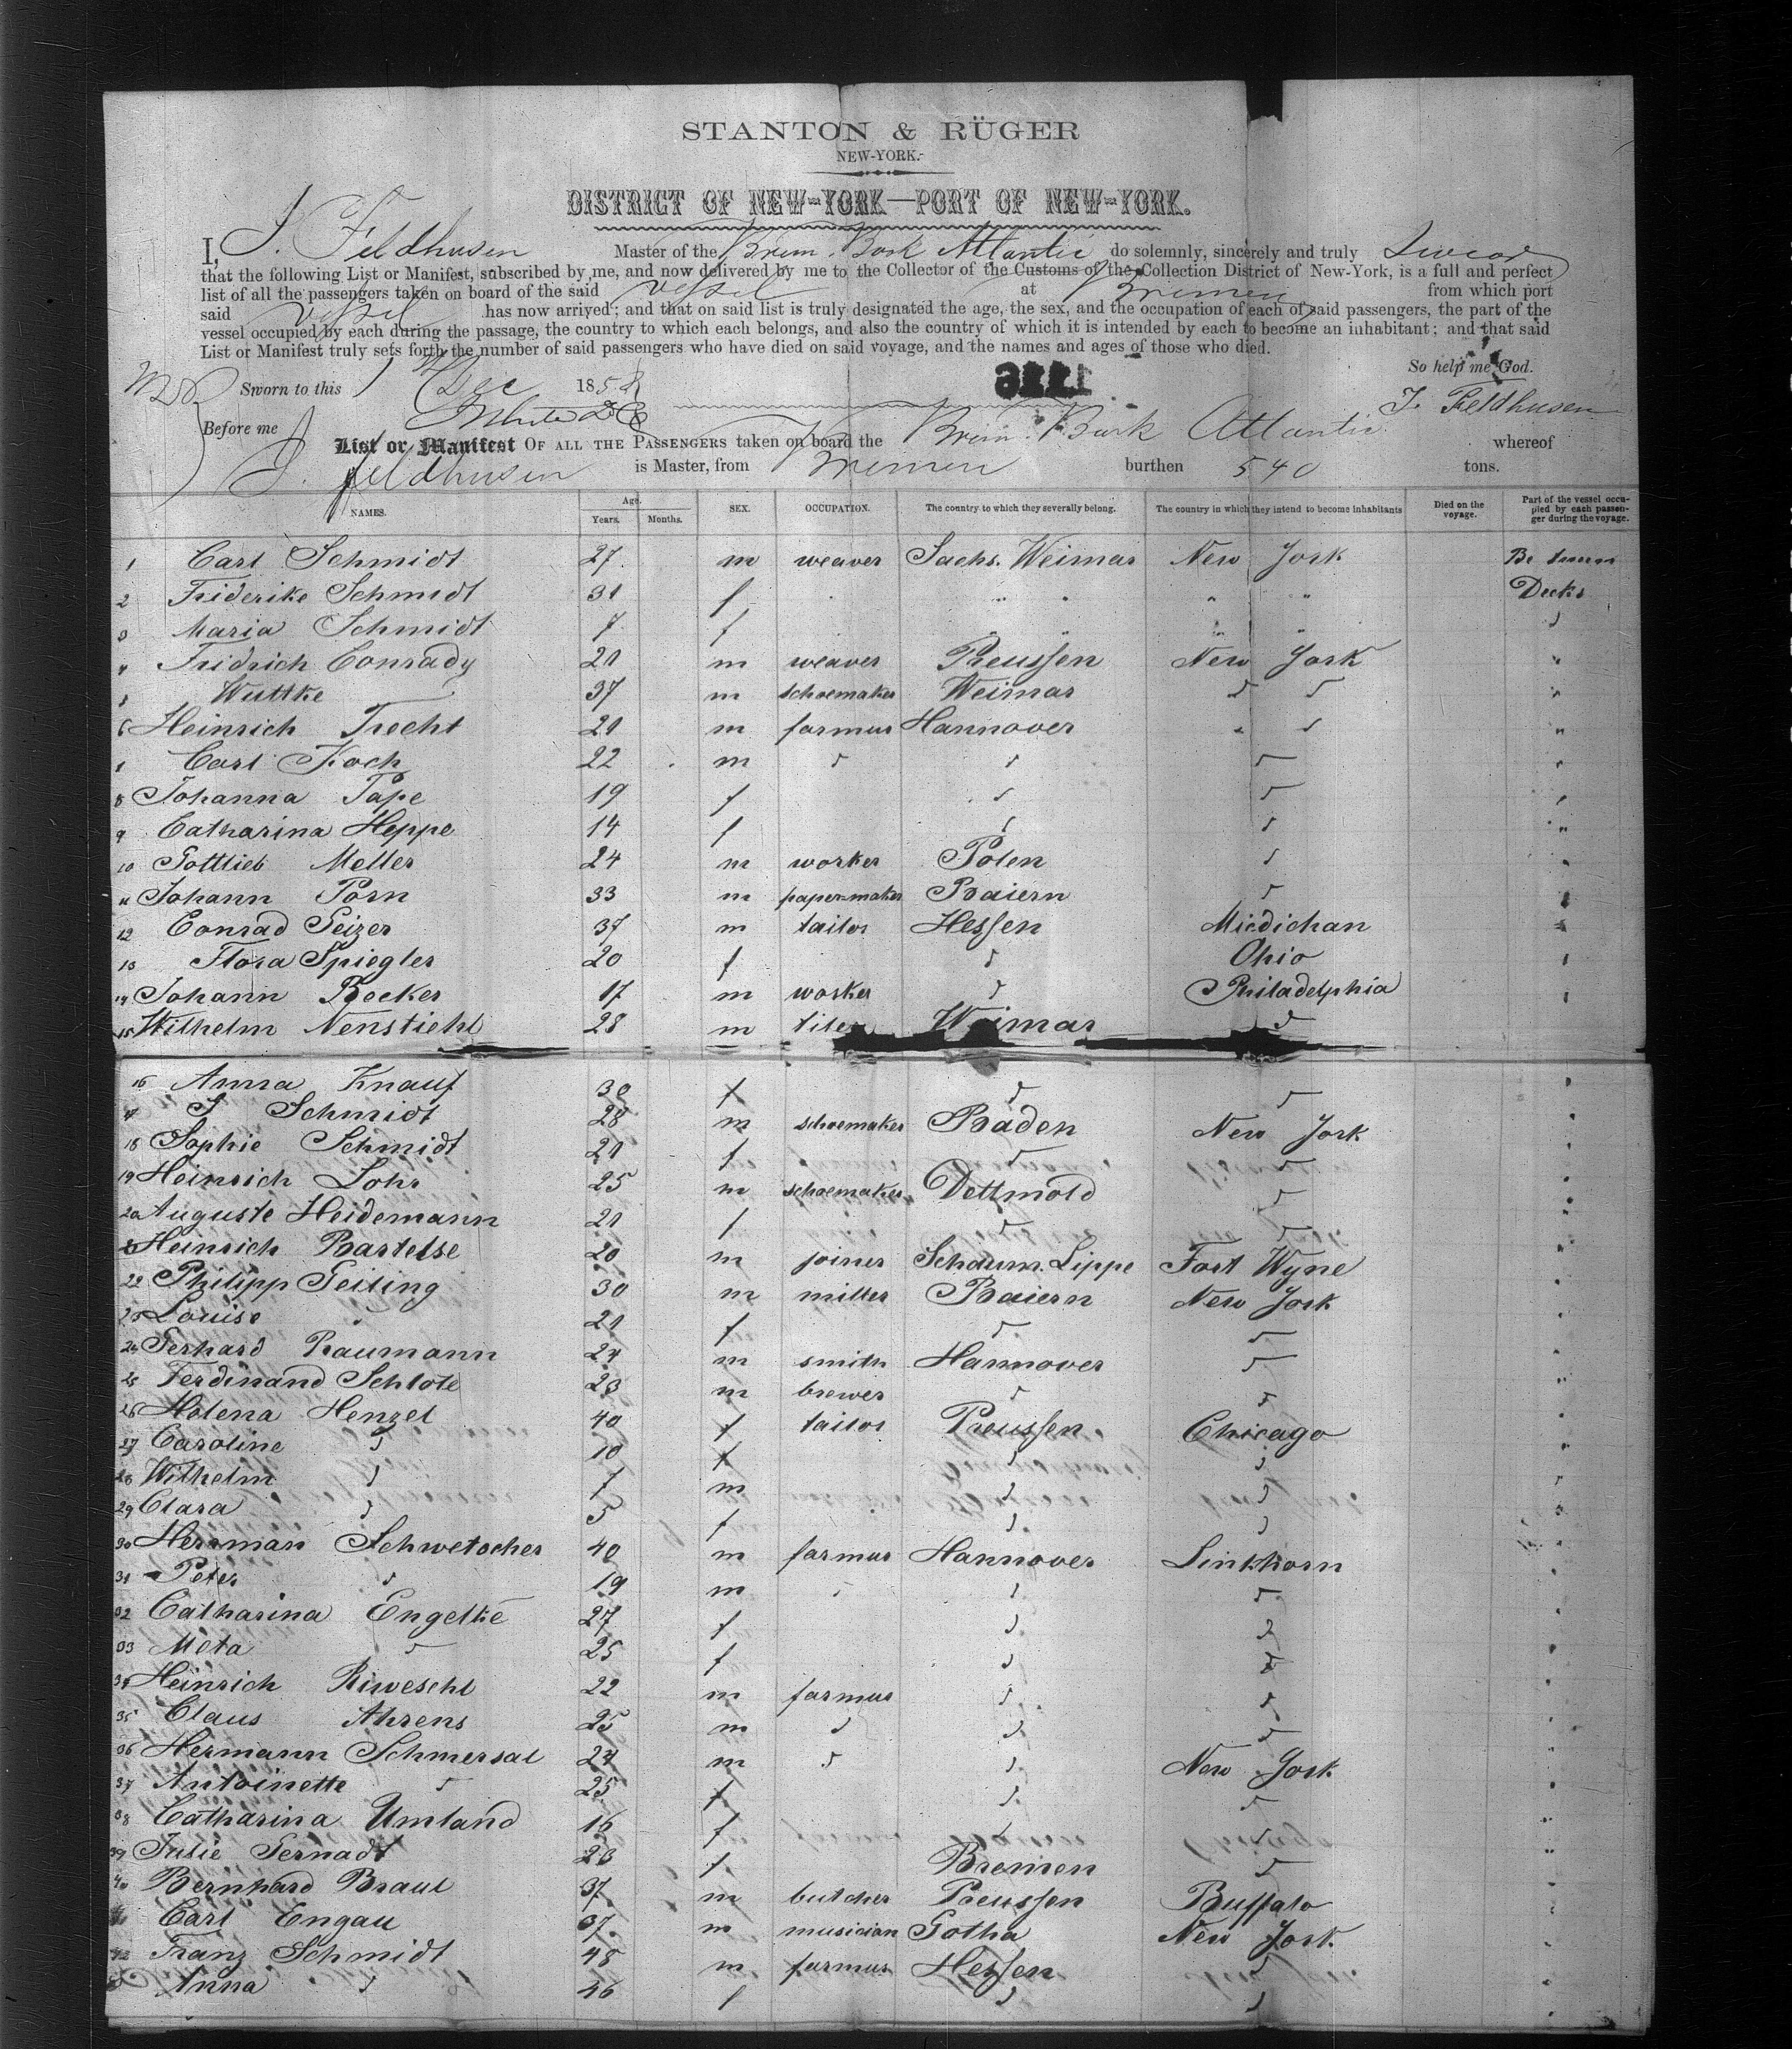 STANTON & RÜGER
NEW-YORK.
DISTRICT OF NEW-YORK—PORT OF NEW-YORK.
I, J. Feldhusen Master of the Brem. Bark Atlantic do solemnly, sincerely and truly Swear
that the following List or Manifest, subscribed by me, and now delivered by me to the Collector of the Customs of the Collection District of New-York, is a full and perfect
list of all the passengers taken on board of the said vessel at Bremen from which port
said vessel has now arrived; and that on said list is truly designated the age, the sex, and the occupation of each of said passengers, the part of the
vessel occupied by each during the passage, the country to which each belongs, and also the country of which it is intended by each to become an inhabitant; and that said
List or Manifest truly sets forth the number of said passengers who have died on said voyage, and the names and ages of those who died.
So help me God.
Sworn to this 1 Dec 1858
J. Feldhusen
Before me
List or Manifest OF ALL THE PASSENGERS taken on board the Brem. Bark Atlantic whereof
J. Feldhusen is Master, from Bremen burthen 540 tons.
NAMES. Age. Years. Months. SEX. OCCUPATION. The country to which they severally belong. The country in which they intend to become inhabitants Died on the voyage. Part of the vessel occupied by each passenger during the voyage.
1 Carl Schmidt 27 m weaver Sachs. Weimar New York Between
2 Friderike Schmidt 31 f " " " " Decks
3 Maria Schmidt 7 f " " " "
4 Fridrich Conrady 21 m weaver Preussen New York "
5 Wuttke 37 m schoemaker Weimar " " "
6 Heinrich Trecht 21 m farmus Hannover " " "
Carl Koch 22 m " " " "
8 Johanna Pape 19 f " " "
9 Catharina Heppe 14 f " " "
10 Gottlieb Meller 24 m worker Polen " "
11 Johann Porn 33 m paper-maker Baiern " "
12 Conrad Geizer 37 m tailor Hessen Miedichan "
13 Flora Spiegler 20 f " Ohio "
14 Johann Becker 17 m worker " Philadelphia "
15 Wilhelm Nenstiehl 28 m Weimar "
16 Anna Knauf 30 f " " "
17 J Schmidt 28 m schoemaker Baden New York "
18 Sophie Schmidt 21 f " " "
19 Heinrich Lohr 25 m schoemaker Dettmold " "
20 Auguste Heidemann 21 f " " "
21 Heinrich Bartelse 20 m joiner Schaum. Lippe Fort Wyne "
22 Philipp Geiling 30 m miller Baiern New York "
23 Louise " 21 f " " "
24 Gerhard Raumann 24 m smith Hannover " "
25 Ferdinand Schlote 23 m brewer " " "
26 Helena Henzel 40 f tailor Preussen Chicago "
27 Caroline " 10 f " " "
28 Wilhelm " 7 m " " "
29 Clara " 5 f " " "
30 Herrman Schwetscher 40 m farmus Hannover Linkhorn "
31 Peter " 19 m " " " "
32 Catharina Engelke 27 f " " "
33 Meta " 25 f " " "
34 Heinrich Riweschl 22 m farmus " " "
35 Claus Ahrens 25 m " " " "
36 Hermann Schmersal 24 m " " New York "
37 Antoinette " 25 f " " "
38 Catharina Umland 16 f " " "
39 Julie Gernadt 23 f Bremen " "
40 Bernhard Braul 37 m butcher Preussen Buffalo "
Carl Engau 37 m musician Gotha New York "
42 Franz Schmidt 48 m farmus Hessen " "
Anna " 46 f " " "